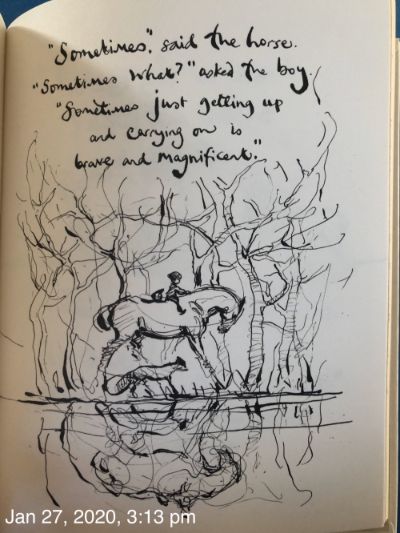 "Sometimes", said the horse.
"Sometimes what?" asked the boy.
"Sometimes just getting up
and carrying on is
brave and magnificent."
Jan 27, 2020, 3:13 pm